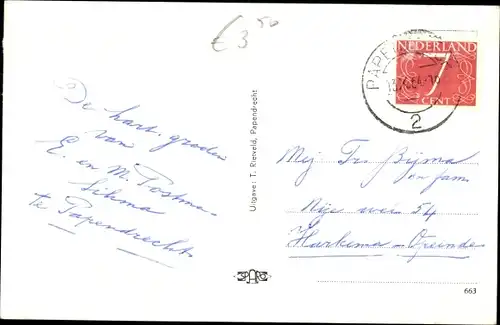 € 3 50
NEDERLAND
7
CENT
PAPEN
2
De hart. groeten
van
E. en M. Postma
Sikma
te Papendrecht
Uitgave: T. Rietveld, Papendrecht
Mej Tr. Bijma
en fam
Nije wei 54
Harkema-Opeinde
663